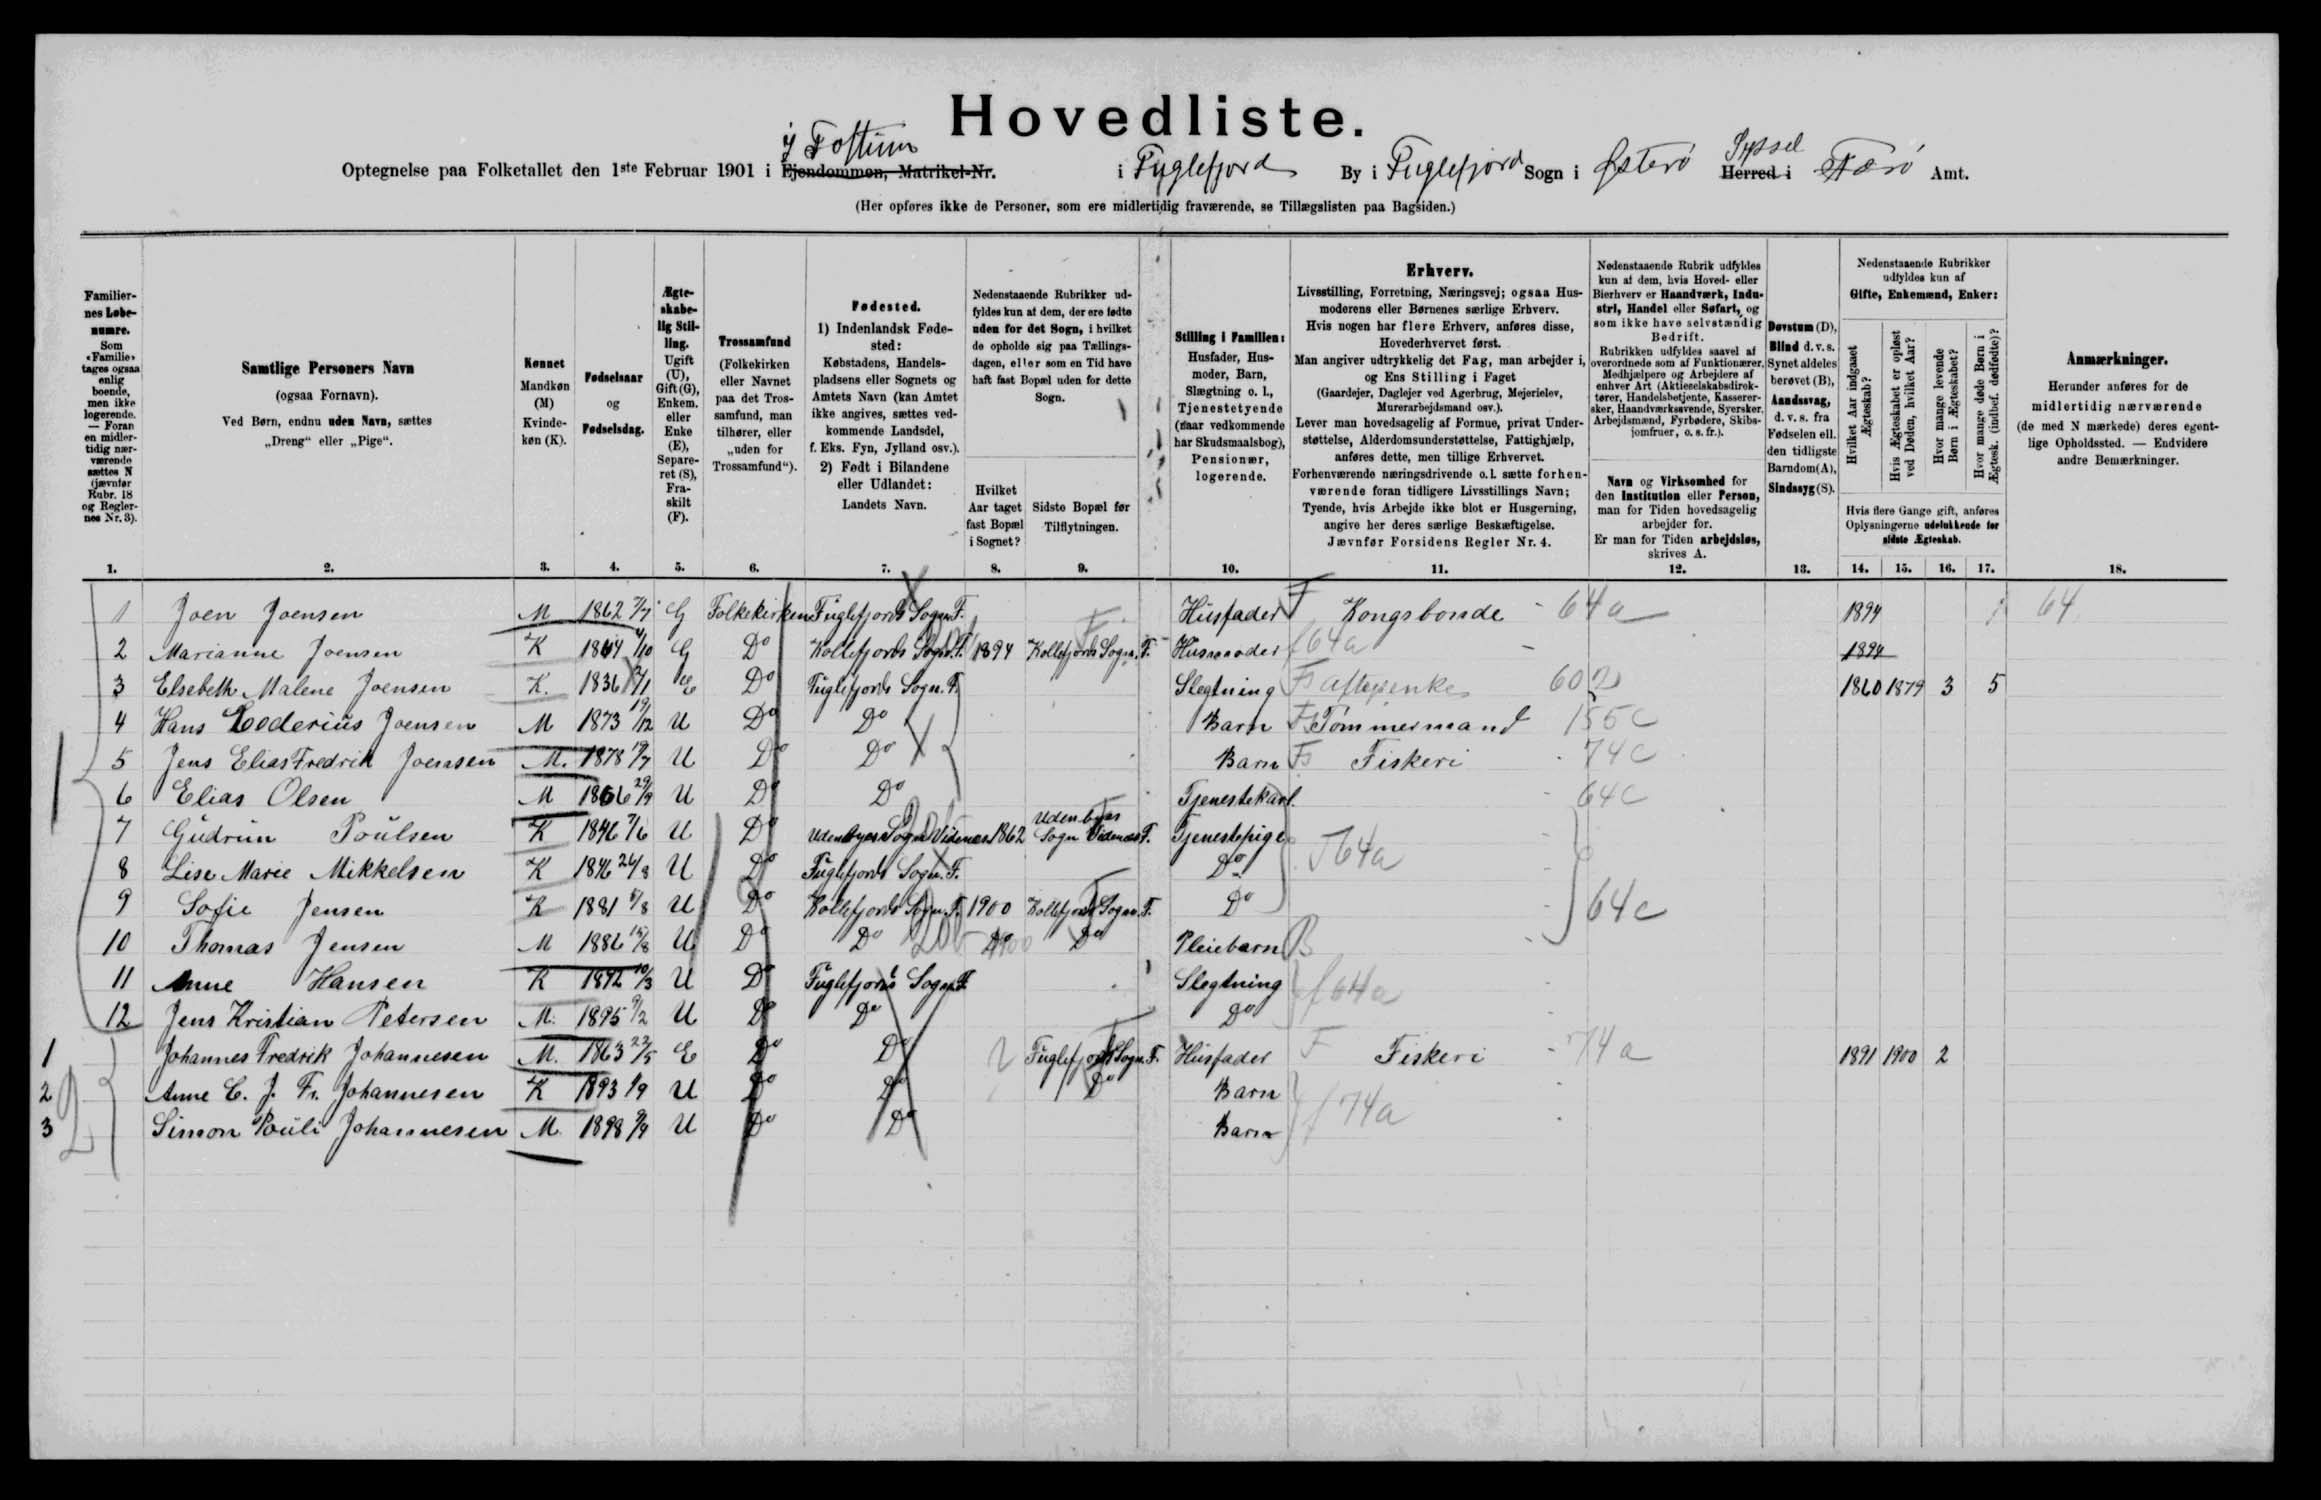 Hovedliste.
i Toftum
Optegnelse paa Folketallet den 1ste Februar 1901 i Ejendommen, Matrikel-Nr. i Fuglefjord By i Fuglefjord Sogn i Østerø Syssel Herred i Færø Amt.
(Her opføres ikke de Personer, som ere midlertidig fraværende, se Tillægslisten paa Bagsiden.)
Familiernes Løbenumre.
Som «Familie» tages ogsaa enlig boende, men ikke logerende. — Foran en midlertidig nærværende sættes N (jævnfør Rubr. 18 og Reglernes Nr. 3).
Samtlige Personers Navn
(ogsaa Fornavn).
Ved Børn, endnu uden Navn, sættes
„Dreng“ eller „Pige“.
Kønnet
Mandkøn (M)
Kvindekøn (K).
Fødselsaar
og
Fødselsdag.
Ægteskabelig Stilling.
Ugift (U), Gift (G), Enkem. eller Enke (E), Separeret (S), Fraskilt (F).
Trossamfund
(Folkekirken eller Navnet paa det Trossamfund, man tilhører, eller „uden for Trossamfund“).
Fødested.
1) Indenlandsk Fødested:
Købstadens, Handelspladsens eller Sognets og Amtets Navn (kan Amtet ikke angives, sættes vedkommende Landsdel, f. Eks. Fyn, Jylland osv.).
2) Født i Bilandene eller Udlandet:
Landets Navn.
Nedenstaaende Rubrikker udfyldes kun af dem, der ere fødte uden for det Sogn, i hvilket de opholde sig paa Tællingsdagen, eller som en Tid have haft fast Bopæl uden for dette Sogn.
Hvilket Aar taget fast Bopæl i Sognet?
Sidste Bopæl før Tilflytningen.
Stilling i Familien:
Husfader, Husmoder, Barn, Slægtning o. l., Tjenestetyende (naar vedkommende har Skudsmaalsbog), Pensionær, logerende.
Erhverv.
Livsstilling, Forretning, Næringsvej; ogsaa Husmoderens eller Børnenes særlige Erhverv.
Hvis nogen har flere Erhverv, anføres disse, Hovederhvervet først.
Man angiver udtrykkelig det Fag, man arbejder i, og Ens Stilling i Faget
(Gaardejer, Daglejer ved Agerbrug, Mejerielev, Murerarbejdsmand osv.).
Lever man hovedsagelig af Formue, privat Understøttelse, Alderdomsunderstøttelse, Fattighjælp, anføres dette, men tillige Erhvervet.
Forhenværende næringsdrivende o. l. sætte forhenværende foran tidligere Livsstillings Navn; Tyende, hvis Arbejde ikke blot er Husgerning, angive her deres særlige Beskæftigelse.
Jævnfør Forsidens Regler Nr. 4.
Nedenstaaende Rubrik udfyldes kun af dem, hvis Hoved- eller Bierhverv er Haandværk, Industri, Handel eller Søfart, og som ikke have selvstændig Bedrift.
Rubrikken udfyldes saavel af overordnede som af Funktionærer, Medhjælpere og Arbejdere af enhver Art (Aktieselskabsdirektører, Handelsbetjente, Kasserersker, Haandværksvende, Syersker, Arbejdsmænd, Fyrbødere, Skibsjomfruer, o. s. fr.).
Navn og Virksomhed for den Institution eller Person, man for Tiden hovedsagelig arbejder for.
Er man for Tiden arbejdsløs, skrives A.
Døvstum (D), Blind d. v. s. Synet aldeles berøvet (B), Aandssvag, d. v. s. fra Fødselen ell. den tidligste Barndom (A), Sindssyg (S).
Nedenstaaende Rubrikker udfyldes kun af
Gifte, Enkemænd, Enker:
Hvilket Aar indgaaet Ægteskab?
Hvis Ægteskabet er opløst ved Døden, hvilket Aar?
Hvor mange levende Børn i Ægteskabet?
Hvor mange døde Børn i Ægtesk. (indbef. dødfødte)?
Hvis flere Gange gift, anføres Oplysningerne udelukkende for sidste Ægteskab.
Anmærkninger.
Herunder anføres for de midlertidig nærværende (de med N mærkede) deres egentlige Opholdssted. — Endvidere andre Bemærkninger.
1. 2. 3. 4. 5. 6. 7. 8. 9. 10. 11. 12. 13. 14. 15. 16. 17. 18.
1 Joen Joensen M 1862 7/7 G Folkekirken Fuglefjords Sogn. F. Husfader F Kongsbonde 64a 1894 64
2 Marianne Joensen K 1864 4/10 G Do Kollefjords Sogn. F. 1894 Kollefjords Sogn. F. Husmoder f64a 1894
3 Elsebeth Malene Joensen K. 1836 2/1 E Do Fuglefjords Sogn. F. Slegtning F 60 1860 1879 3 5
4 Hans Joensen M 1873 19/12 U Do Do Barn Fs Tømmermand 155c
5 Jens Elias Fredrik Joensen M. 1878 19/7 U Do Do Barn Fs Fiskeri 74c
6 Elias Olsen M 1866 29/9 U Do Do Tjenestekarl 64c
7 Gudrun Poulsen K 1846 7/6 U Do Udenbyes Sogn Videnæs 1862 Udenbyes Sogn Videnæs F. Tjenestepige 64a
8 Lise Marie Mikkelsen K 1846 26/8 U Do Fuglefjords Sogn. F. Do
9 Sofie Jensen K 1881 5/8 U Do Kollefjords Sogn. F. 1900 Kollefjords Sogn. F. Do 64c
10 Thomas Jensen M 1886 15/8 U Do Do Do Do Pleiebarn B
11 Anne Hansen K 1892 10/3 U Do Fuglefjords Sogn. F. Slegtning f64a
12 Jens Kristian Petersen M. 1895 9/2 U Do Do Do
1 Johannes Fredrik Johannesen M. 1863 22/5 E Do Do Fuglefjords Sogn. F. Husfader F Fiskeri 74a 1891 1900 2
2 Anne C. J. Fr. Johannesen K 1893 1/9 U Do Do Do Barn f74a
3 Simon Pouli Johannesen M. 1898 9/9 U Do Do Barn